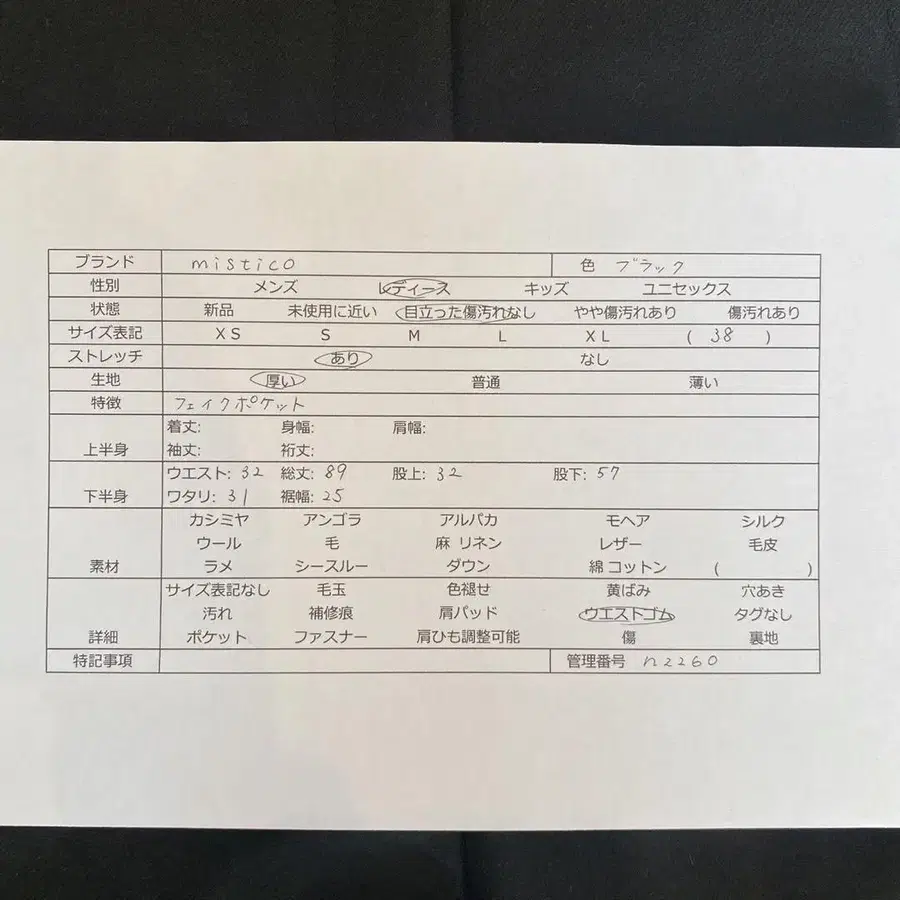 ブランド mistico 色 ブラック
性別 メンズ レディース キッズ ユニセックス
状態 新品 未使用に近い 目立った傷汚れなし やや傷汚れあり 傷汚れあり
サイズ表記 XS S M L XL ( 38 )
ストレッチ あり なし
生地 厚い 普通 薄い
特徴 フェイクポケット
着丈: 身幅: 肩幅:
上半身 袖丈: 裄丈:
ウエスト: 32 総丈: 89 股上: 32 股下: 57
下半身 ワタリ: 31 裾幅: 25
カシミヤ アンゴラ アルパカ モヘア シルク
ウール 毛 麻 リネン レザー 毛皮
素材 ラメ シースルー ダウン 綿 コットン ( )
サイズ表記なし 毛玉 色褪せ 黄ばみ 穴あき
汚れ 補修痕 肩パッド ウエストゴム タグなし
詳細 ポケット ファスナー 肩ひも調整可能 傷 裏地
特記事項 管理番号 n2260